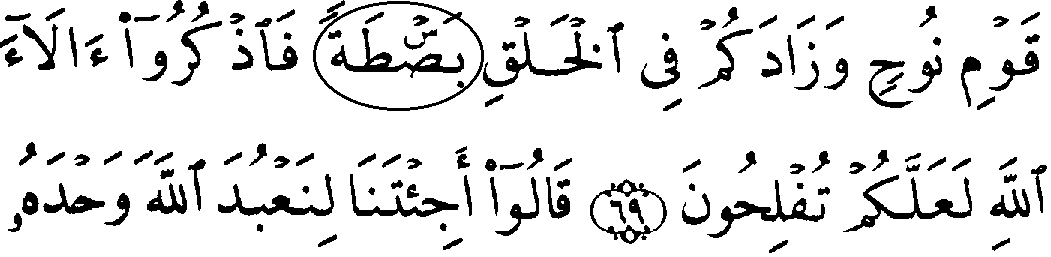 قَوۡمِ نُوحٖ وَزَادَكُمۡ فِي ٱلۡخَلۡقِ بَصۜۡطَةٗۖ فَٱذۡكُرُوٓاْ ءَالَآءَ
ٱللَّهِ لَعَلَّكُمۡ تُفۡلِحُونَ ٦٩ قَالُوٓاْ أَجِئۡتَنَا لِنَعۡبُدَ ٱللَّهَ وَحۡدَهُۥ